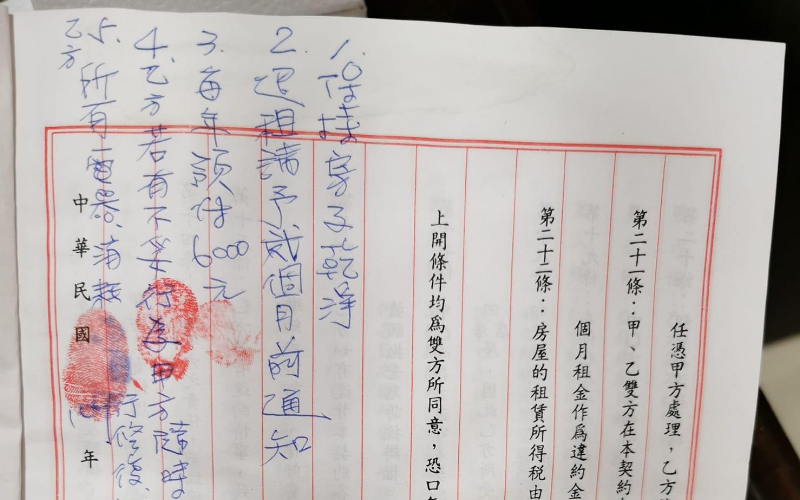 任憑甲方處理，乙方
第二十一條：甲、乙雙方在本契約
個月租金作爲違約金
第二十二條：房屋的租賃所得稅由
上開條件均爲雙方所同意，恐口
1. 保持房子乾淨
2. 退租請予貳個月前通知
3. 每年預付6000元
4. 乙方若有不妥行為甲方隨時
5. 所有電器消耗
乙方
行修復
中華民國 年